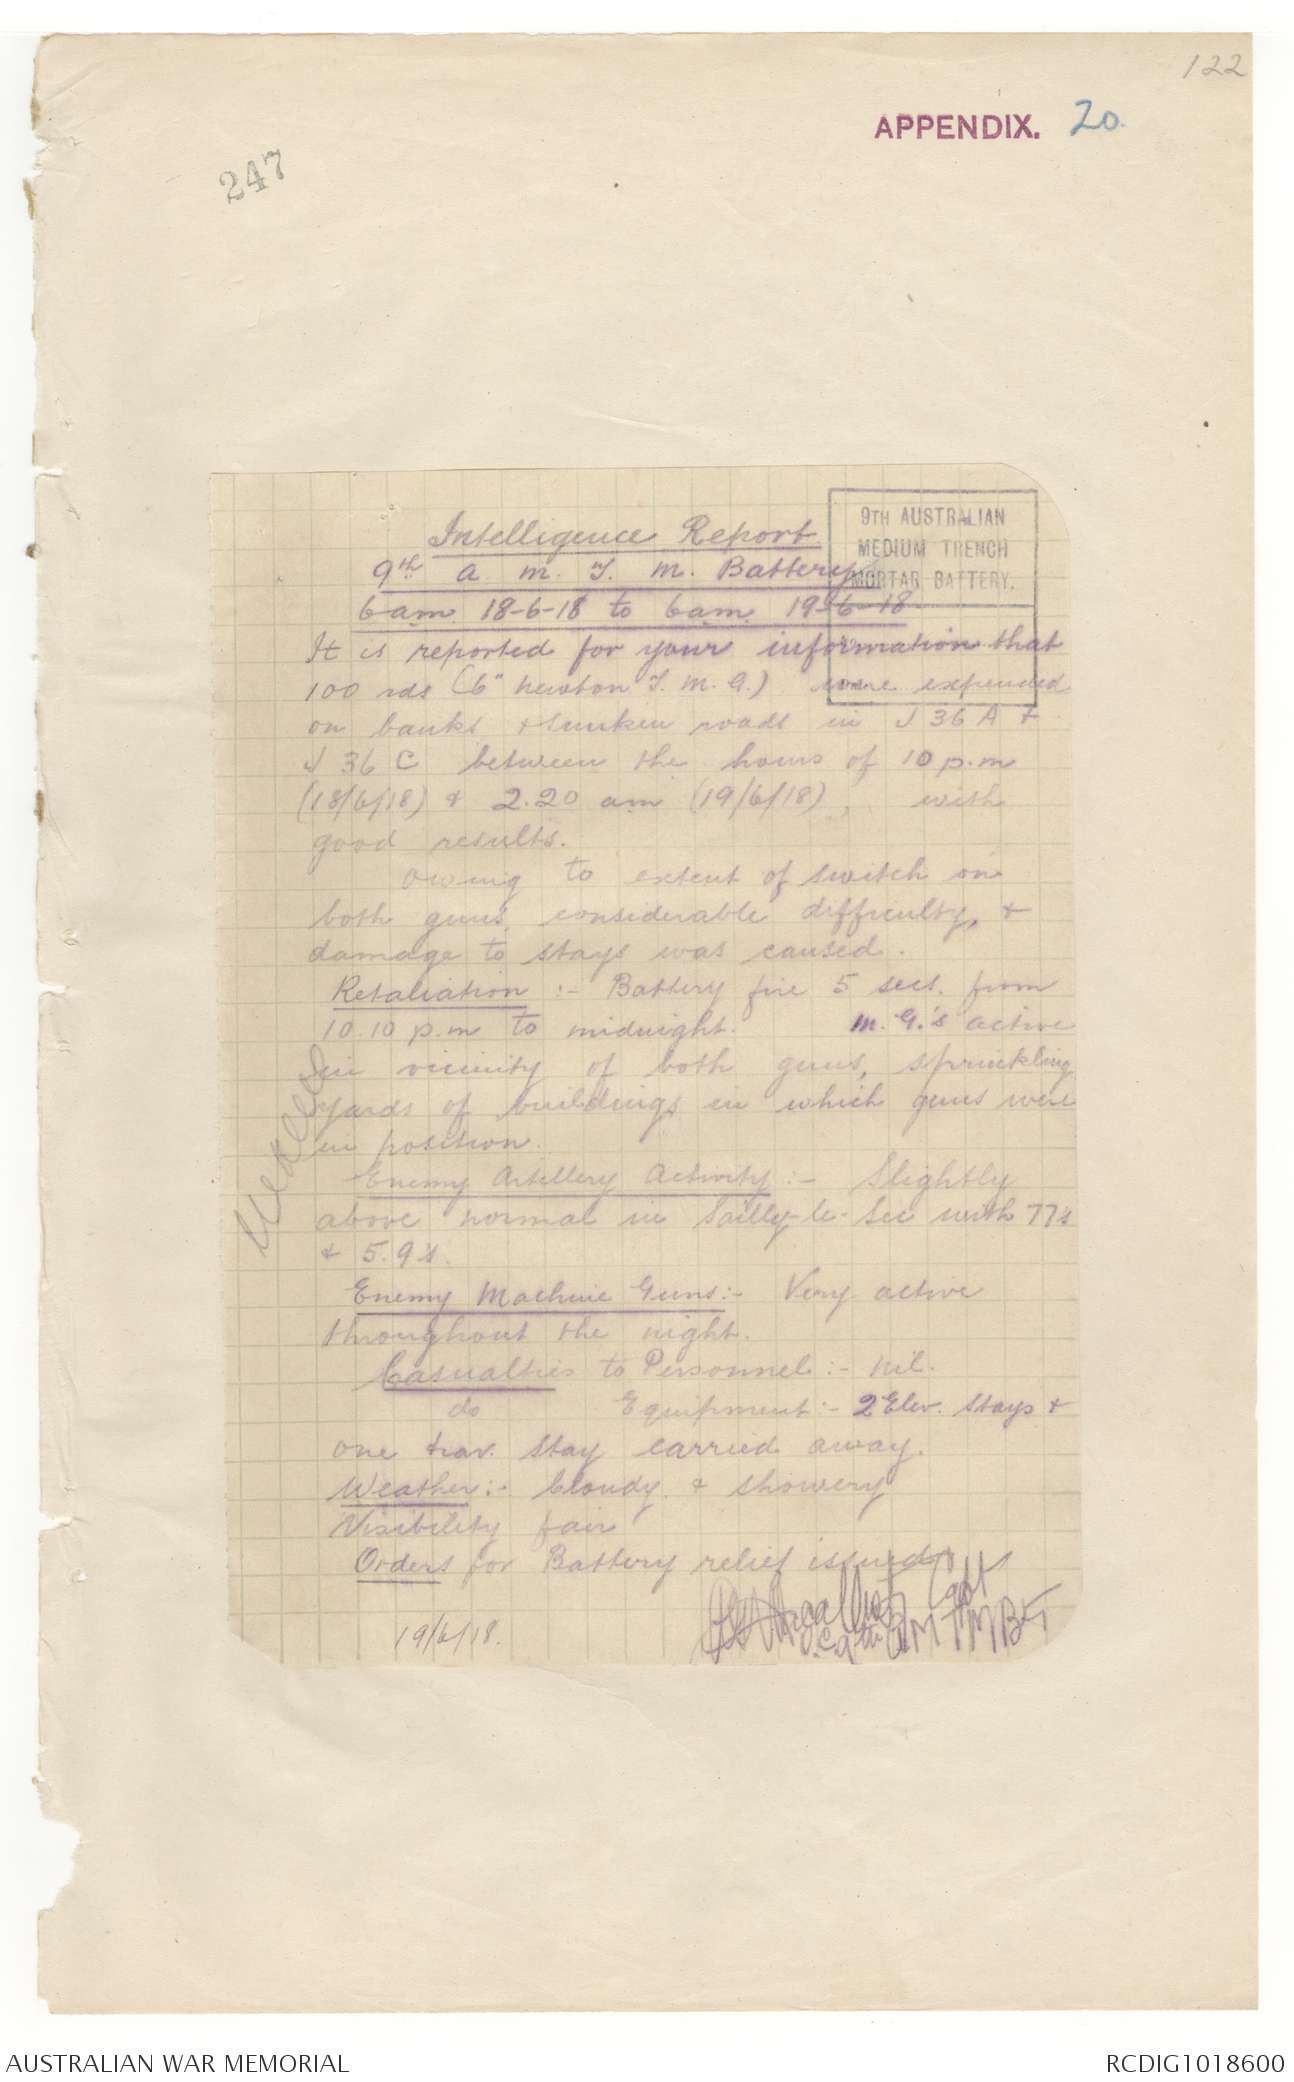 122
APPENDIX. 20.
247
9TH AUSTRALIAN
MEDIUM TRENCH
MORTAR BATTERY.
Intelligence Report
9th A. M. T. M. Battery
6am 18-6-18 to 6am 19-6-18.
It is reported for your information that
100 rds (6" Newton T. M. G.) were expended
on banks & sunken roads in J 36 A &
J 36 C between the hours of 10 p.m
(18/6/18) & 2.20 am (19/6/18), with
good results.
Owing to extent of switch on
both guns, considerable difficulty, &
damage to stays was caused.
Retaliation :- Battery fire 5 secs. from
10.10 p.m to midnight. M. G.'s active
in vicinity of both guns, sprinkling
yards of buildings in which guns were
in position.
Enemy Artillery Activity :- Slightly
above normal in Sailly-le-Sec with 77s
& 5.9's.
Enemy Machine Guns :- Very active
throughout the night.
Casualties to Personnel :- Nil.
do Equipment :- 2 Elev. Stays &
one trav. stay carried away.
Weather :- Cloudy & showery
Visibility fair
Orders for Battery relief issued
Capt
19/6/18. O.C. 9th AMTMBTY